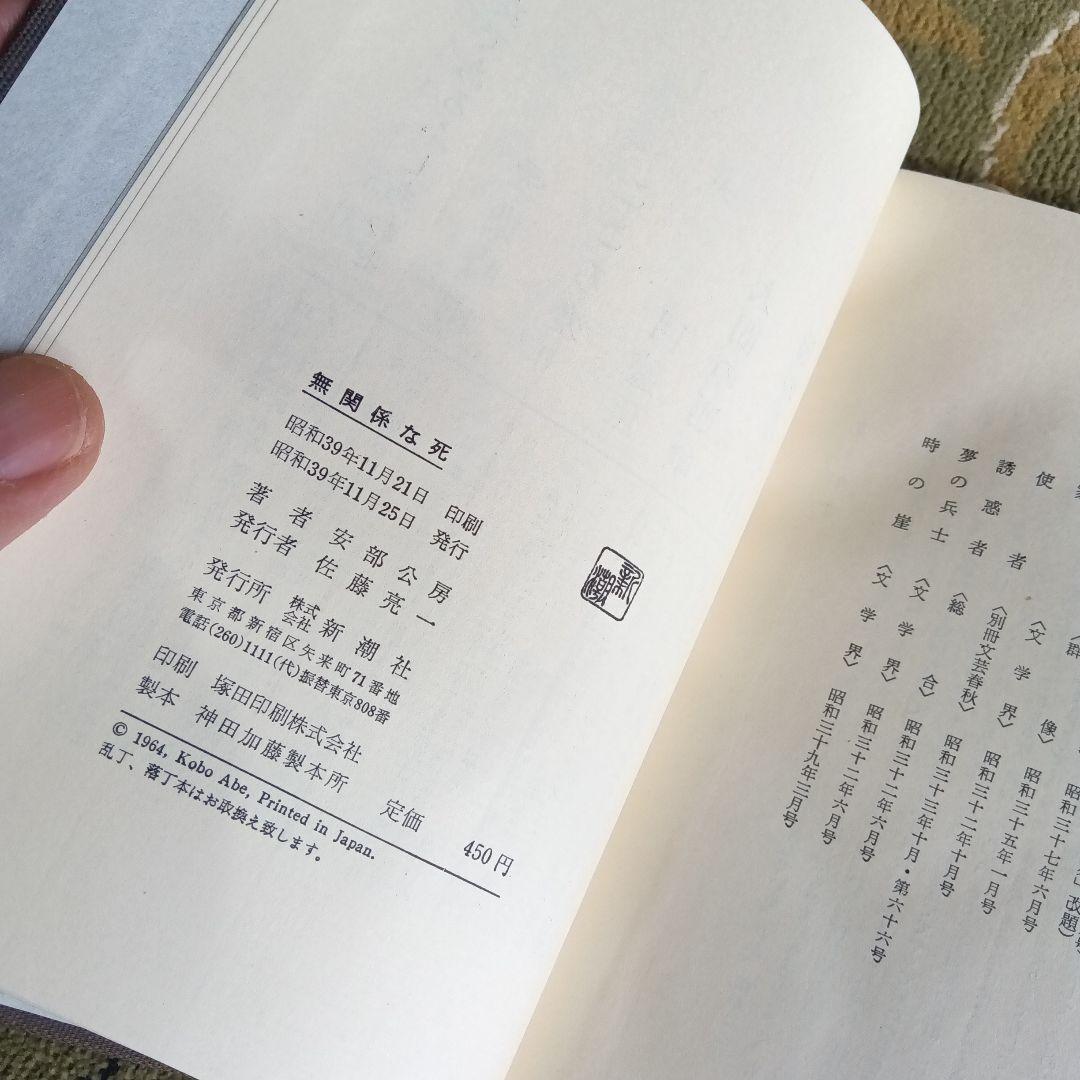 無関係な死
昭和39年11月21日 印刷
昭和39年11月25日 発行
著者 安部公房
発行者 佐藤亮一
発行所 株式会社 新潮社
東京都新宿区矢来町71番地
電話(260)1111(代)振替東京808番
印刷 塚田印刷株式会社
製本 神田加藤製本所
定価 450円
© 1964, Kobo Abe, Printed in Japan.
乱丁、落丁本はお取換え致します。
新潮
改題)
昭和三十七年六月号
〈群像〉 昭和三十五年一月号
〈文学界〉 昭和三十二年十月号
使者 〈別冊文芸春秋〉 昭和三十三年十月・第六十六号
誘惑者 〈総合〉 昭和三十二年六月号
夢の兵士 〈文学界〉 昭和三十二年六月号
時の崖 〈文学界〉 昭和三十九年三月号